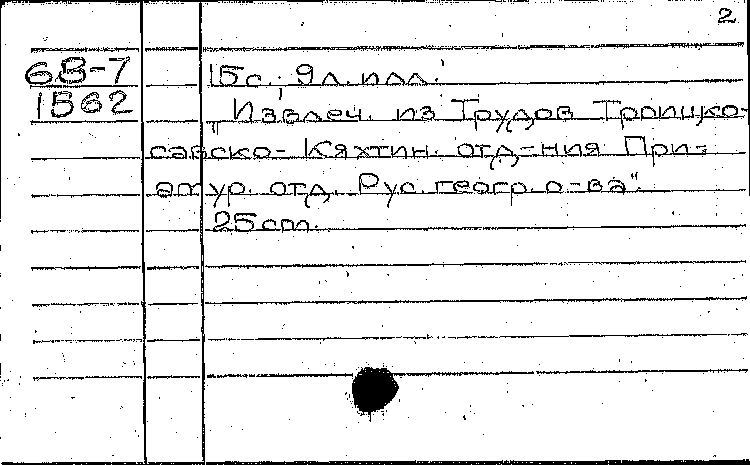 2
68-7 15 с.; 9 л. илл.
1562 "Извлеч. из Трудов Троицко-
савско-Кяхтин. отд-ния При-
амур. отд. Рус. геогр. о-ва".
25 cm.